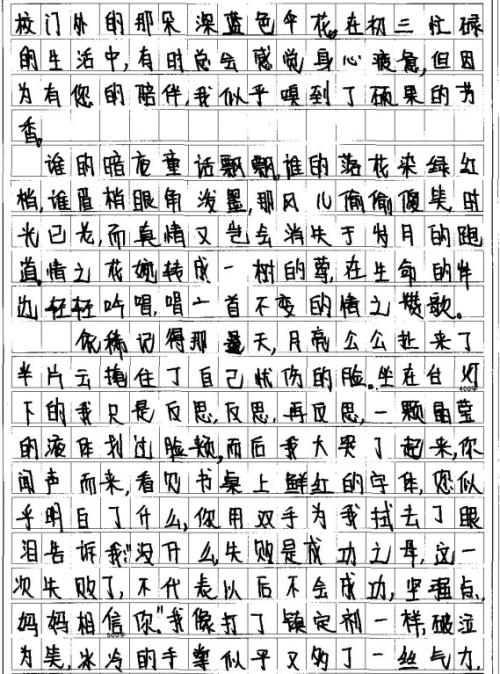 校门外的那朵深蓝色伞花。在初三忙碌
的生活中,有时总会感觉身心疲惫,但因
为有您的陪伴,我似乎嗅到了硕果的芳
香。
谁的暗夜童话飘飘,谁的落花染绿红
梢,谁眉梢眼角泼墨,那风儿偷偷傻笑,时
光已老,而真情又岂会消失于岁月的跑
道,情之花婉转成一树的莺,在生命的畔
边轻轻吟唱,唱一首不变的情之赞歌。
依稀记得那是天,月亮公公赴来了
半片云掩住了自己忧伤的脸。坐在台灯
下的我只是反思,反思,再反思,一颗晶莹
的液体划过脸颊,而后我大哭了起来,你
闻声而来,看见书桌上鲜红的字体,您似
乎明白了什么,你用双手为我拭去了眼
泪告诉我:"没什么,失败是成功之母,这一
次失败了,不代表以后不会成功,坚强点,
妈妈相信你"我像打了镇定剂一样,破泣
为笑,冰冷的手掌似乎又多了一丝气力,